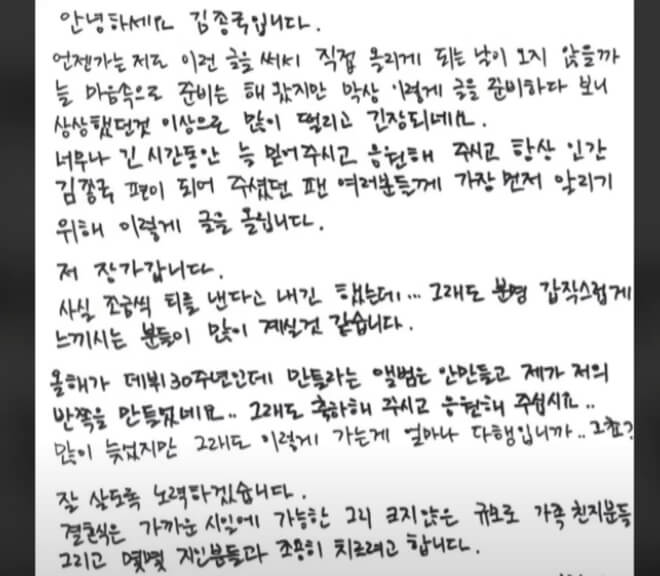 안녕하세요 김종국입니다.
언젠가는 저도 이런 글을 써서 직접 올리게 되는 날이 오지 않을까
늘 마음속으로 준비는 해 왔지만 막상 이렇게 글을 준비하다 보니
상상했던것 이상으로 많이 떨리고 긴장되네요.
너무나 긴 시간동안 늘 믿어주시고 응원해 주시고 항상 인간
김종국 편이 되어 주셨던 팬 여러분들께 가장 먼저 알리기
위해 이렇게 글을 올립니다.
저 장가갑니다.
사실 조금씩 티를 낸다고 내긴 했는데... 그래도 분명 갑작스럽게
느끼시는 분들이 많이 계실것 같습니다.
올해가 데뷔30주년인데 만들라는 앨범은 안만들고 제가 저의
반쪽을 만들었네요.. 그래도 축하해 주시고 응원해 주십시요..
많이 늦었지만 그래도 이렇게 가는게 얼마나 다행입니까.. 그쵸?
잘 살도록 노력하겠습니다.
결혼식은 가까운 시일에 가능한 그리 크지않은 규모로 가족 친지분들
그리고 몇몇 지인분들과 조용히 치르려고 합니다.